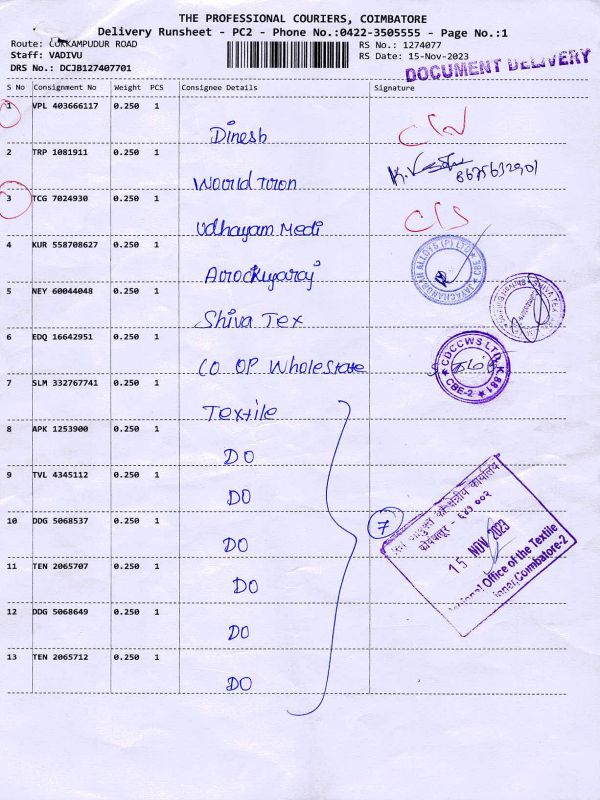 THE PROFESSIONAL COURIERS, COIMBATORE
Delivery Runsheet - PC2 - Phone No.:0422-3505555 - Page No.:1
Route: COKKAMPUDUR ROAD
RS No.: 1274077
Staff: VADIVU
RS Date: 15-Nov-2023
DRS No.: DCJB127407701
DOCUMENT DELIVERY
S No Consignment No Weight PCS Consignee Details Signature
1 VPL 403666117 0.250 1 Dinesh
2 TRP 1081911 0.250 1 Woorld Tiron 8675632901
3 TCG 7024930 0.250 1 Udhayam Medi C/S
4 KUR 558708627 0.250 1 Aarockiyaraj
JAYACHANDRAM ALLOYS (P) LTD CBE
5 NEY 60044048 0.250 1 Shiva Tex
SHIVA TEX
6 EDQ 16642951 0.250 1 CO OP Wholestate
CDCCWS LTD. K.881
CBE-2
7 SLM 332767741 0.250 1 Textile
8 APK 1253900 0.250 1 DO
9 TVL 4345112 0.250 1 DO
10 DDG 5068537 0.250 1 DO
7
11 TEN 2065707 0.250 1 DO
12 DDG 5068649 0.250 1 DO
13 TEN 2065712 0.250 1 DO
क्षेत्रीय कार्यालय
कोयम्बतूर - ६४१ ००२
15 NOV 2023
Office of the Textile
Coimbatore-2